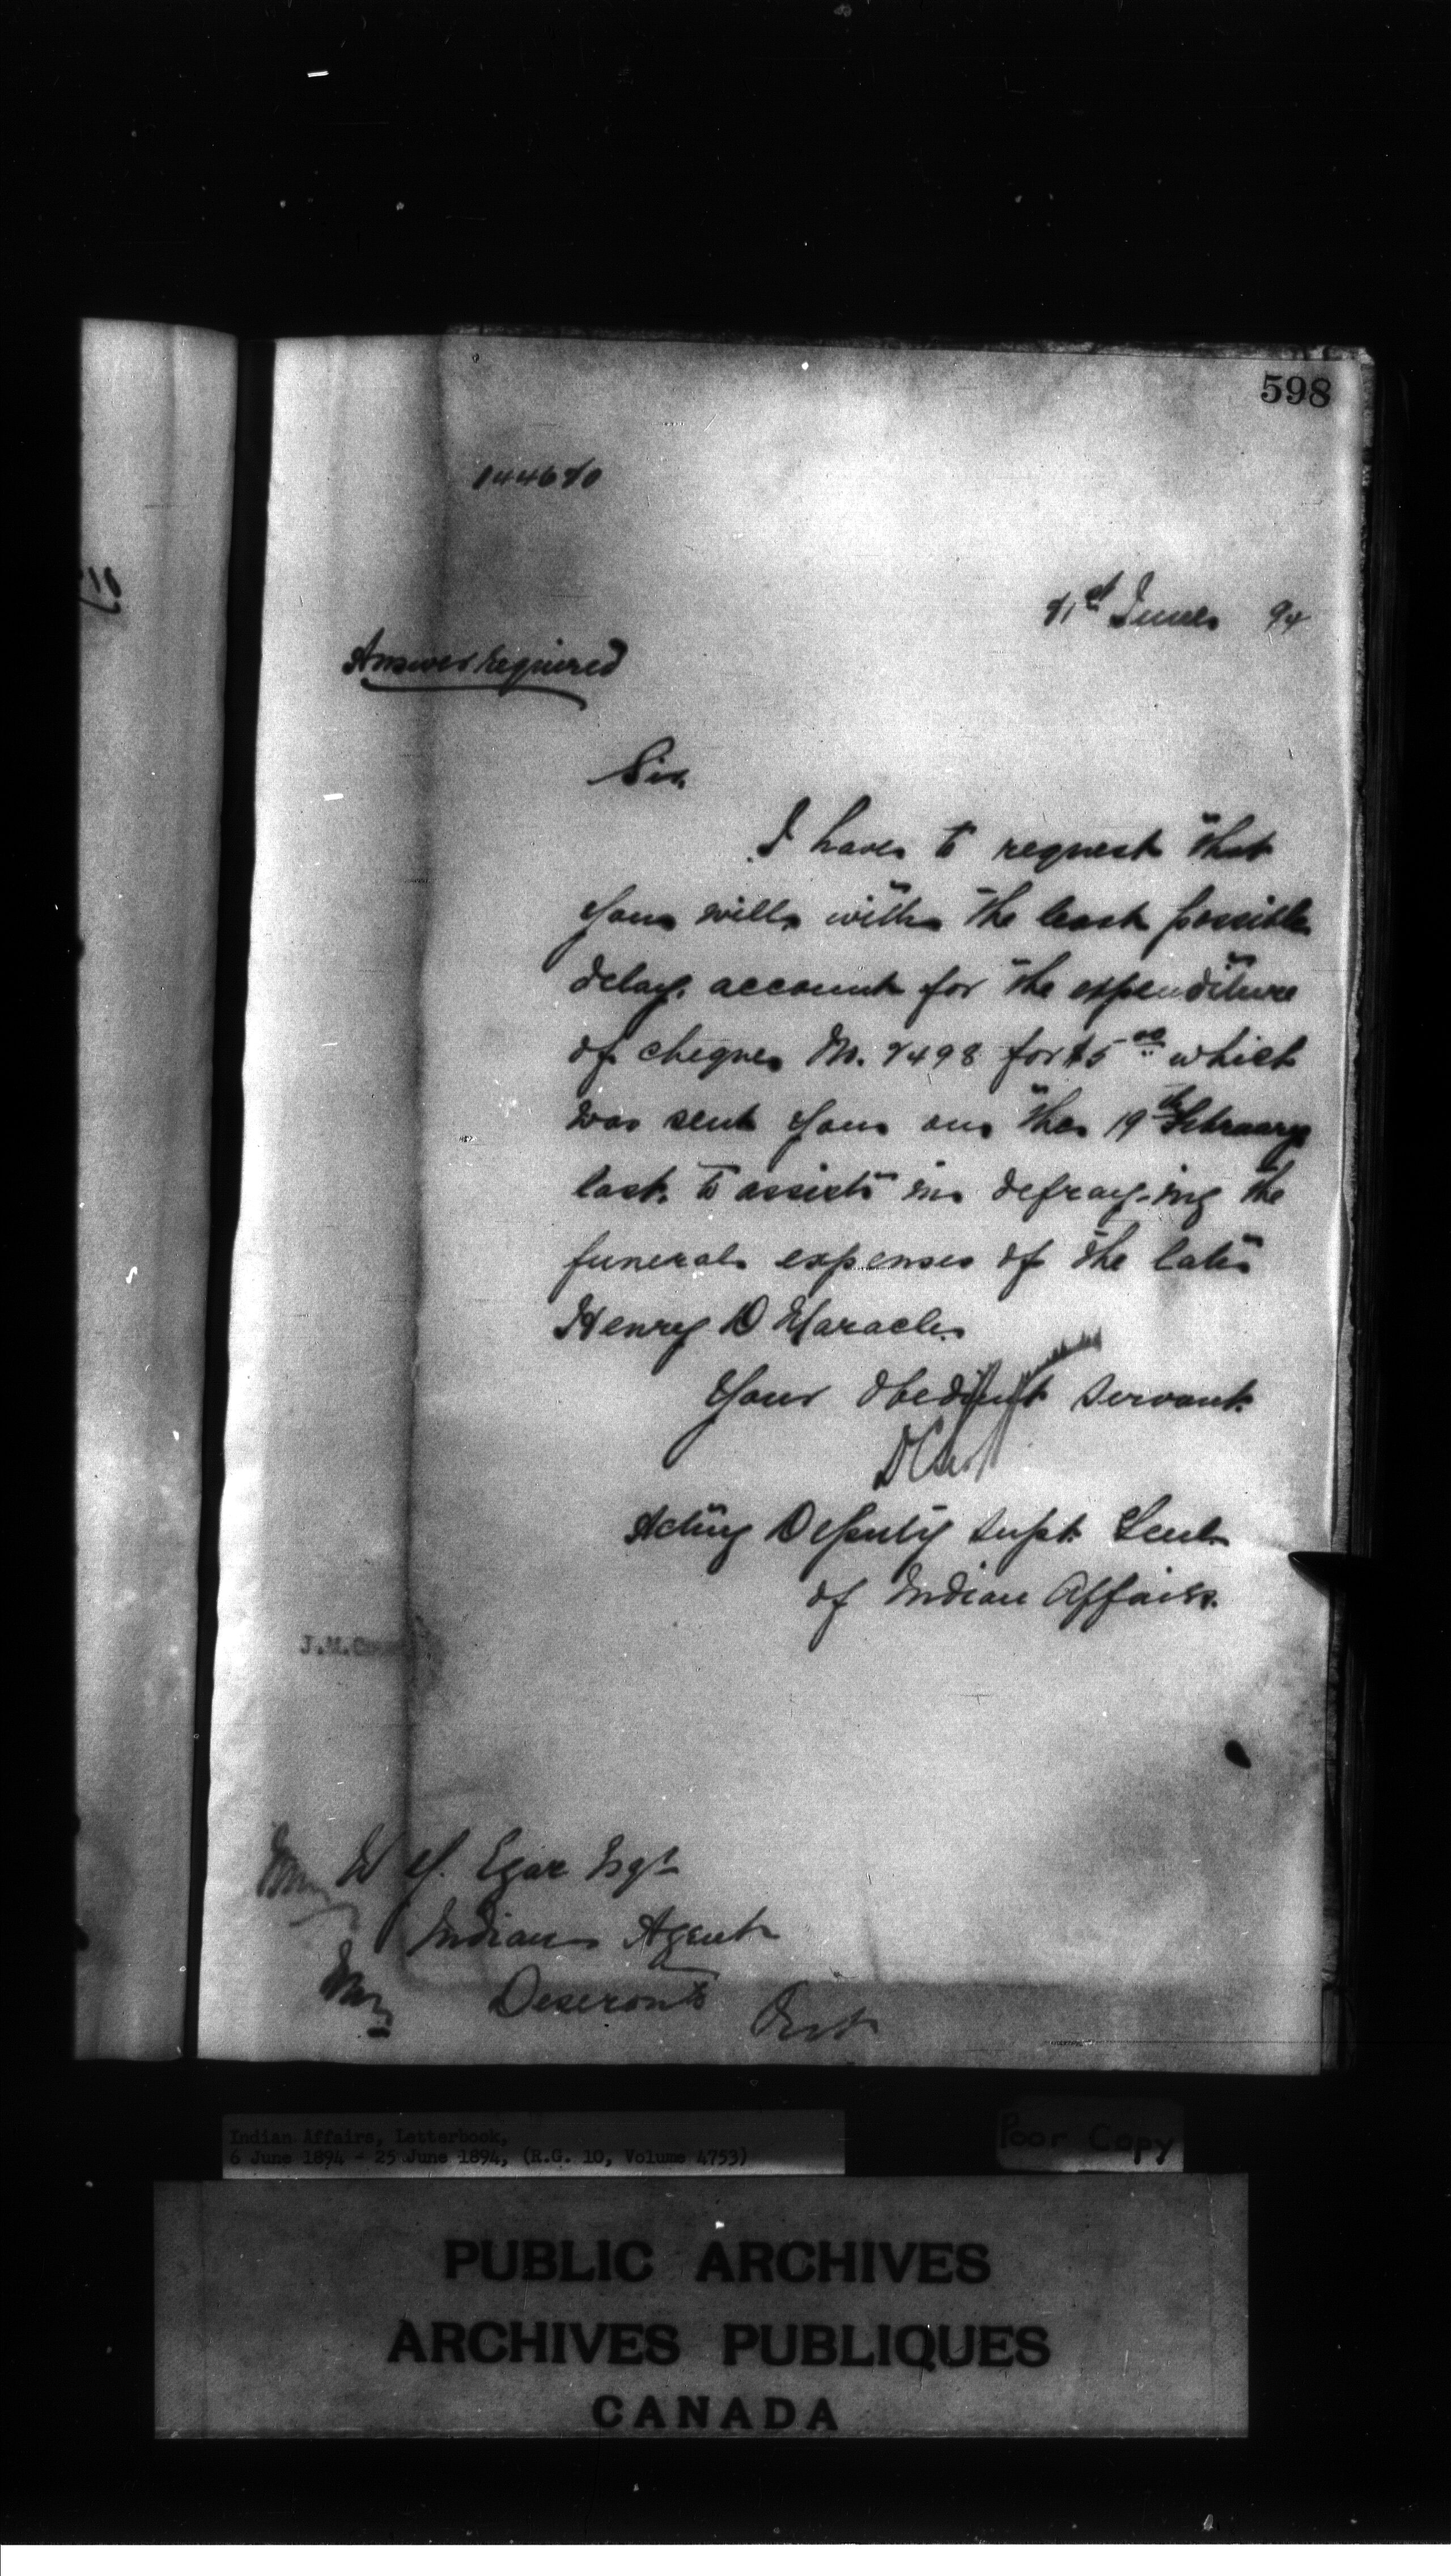 598
144670
21st June 94
Answer required
Sir,
I have to request that
you will, with the least possible
delay, account for the expenditure
of cheque No. 2498 for $5.00 which
was sent you on the 19th February
last, to assist in defraying the
funeral expenses of the late
Henry D Maracle.
Your obedient servant.
Acting Deputy Supt. Genl.
of Indian Affairs.
J.M.
W G. Egar Esqr
Indian Agent
Deseronto Ont
Indian Affairs, Letterbook,
6 June 1894 - 25 June 1894, (R.G. 10, Volume 4753)
Poor Copy
PUBLIC ARCHIVES
ARCHIVES PUBLIQUES
CANADA